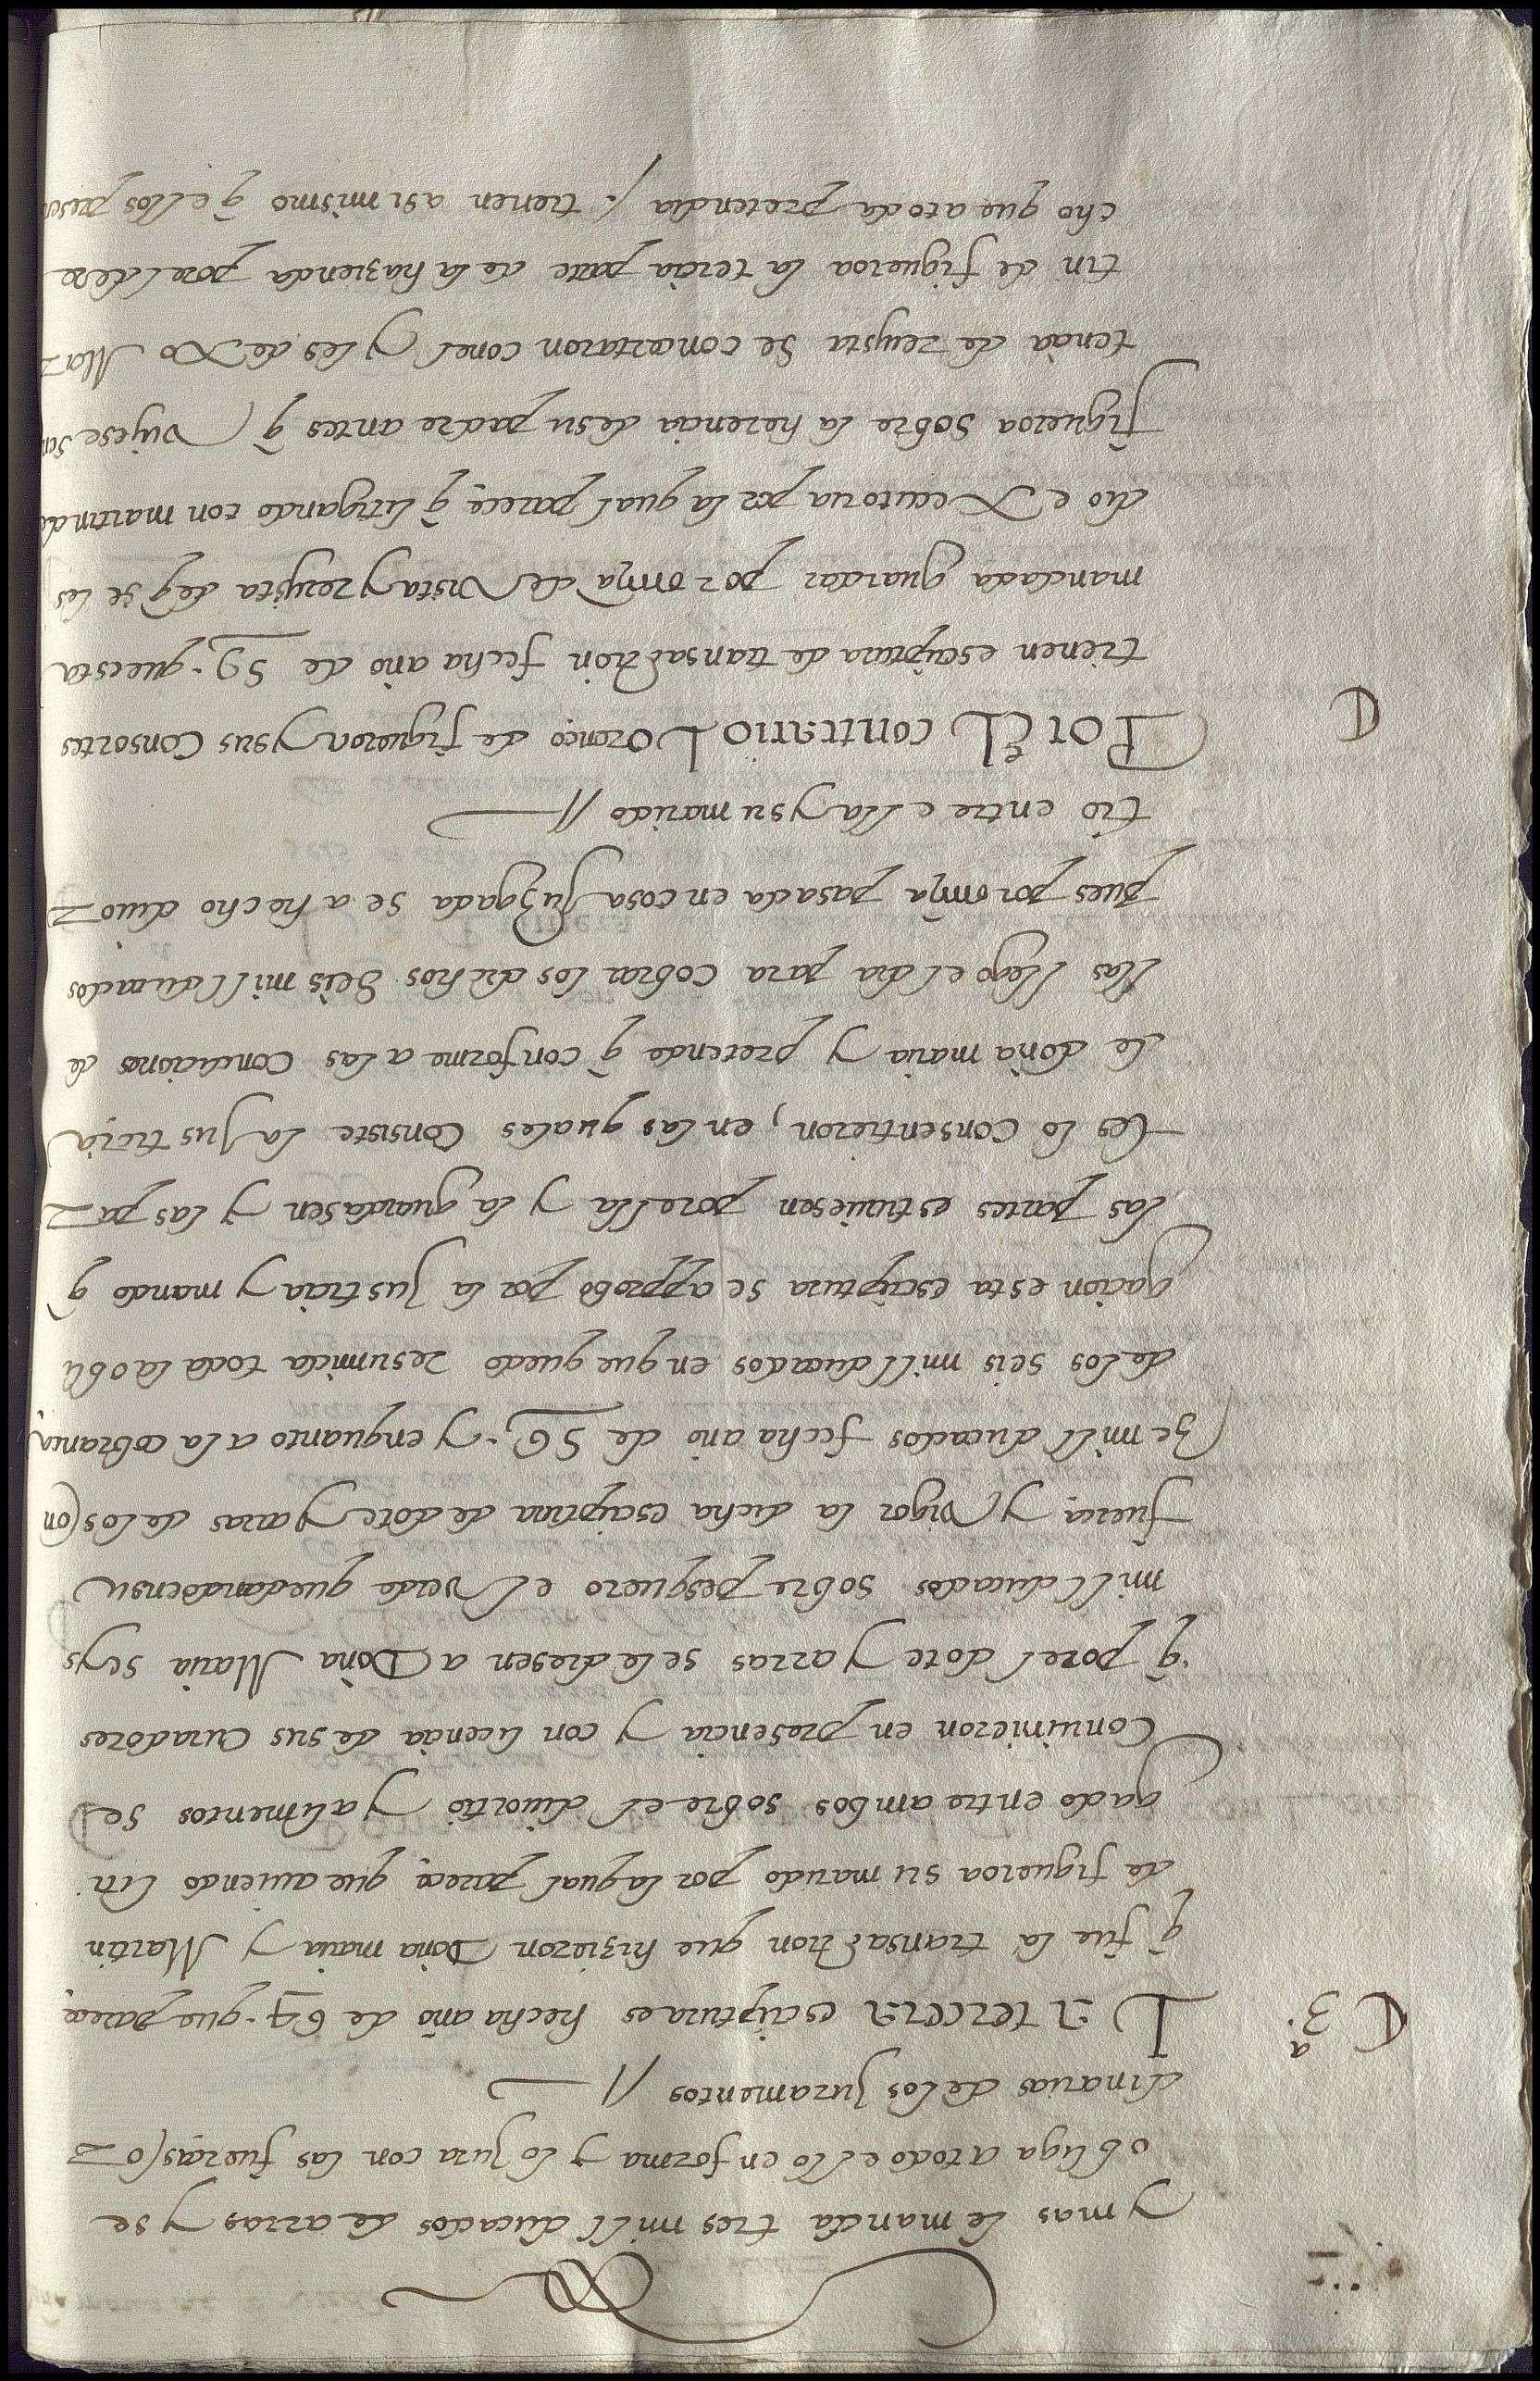 y mas le manda tres mill ducados de arras y se
obliga a todo ello en forma y lo jura con las fuerças or
dinarias de los juramentos //
3.ª La tercera escriptura es hecha año de 64. que parece
q̃ fue la transaction que hizieron Doña maria y Martin
de figueroa su marido por la qual parece que auiendo liti
gado entre ambos sobre el diuortio y alimentos se
Conuinieron en presencia y con licencia de sus curadores
q̃ por el dote y arras se le diesen a Doña Maria seys
mill ducados sobre pesquero el Verde quedando en su
fuerça y Vigor la dicha escriptura de dote y arras de los on
ze mill ducados fecha año de 56. y en quanto a la cobrança
de los seis mill ducados en que quedo resumida toda la obli
gacion esta escriptura se approbo por la justicia y mando q̃
las partes estuuiesen por ella y la guardasen y las par
tes lo consentieron, en las quales consiste la justicia
de doña maria y pretende q̃ conforme a las condiciones de
llas llego el dia para cobrar los dichos seis mill ducados
pues por snñ̃a pasada en cosa juzgada se a hecho diuor
tio entre ella y su marido //
Por El contrario Lorenço de figueroa y sus Consortes
tienen escriptura de transaction fecha año de 59. que esta
mandada guardar por snñ̃a de Vista y reuista de q̃ se les
dio eXecutoria por la qual parece q̃ litigando con martin de
figueroa sobre la herencia de su padre antes q̃ Vuiese sen
tencia de reuista se concertaron con el y les deXo Mar
tin de figueroa la tercia parte de la hazienda por el dere
cho que a toda pretendia /. tienen asi mismo q̃ ellos